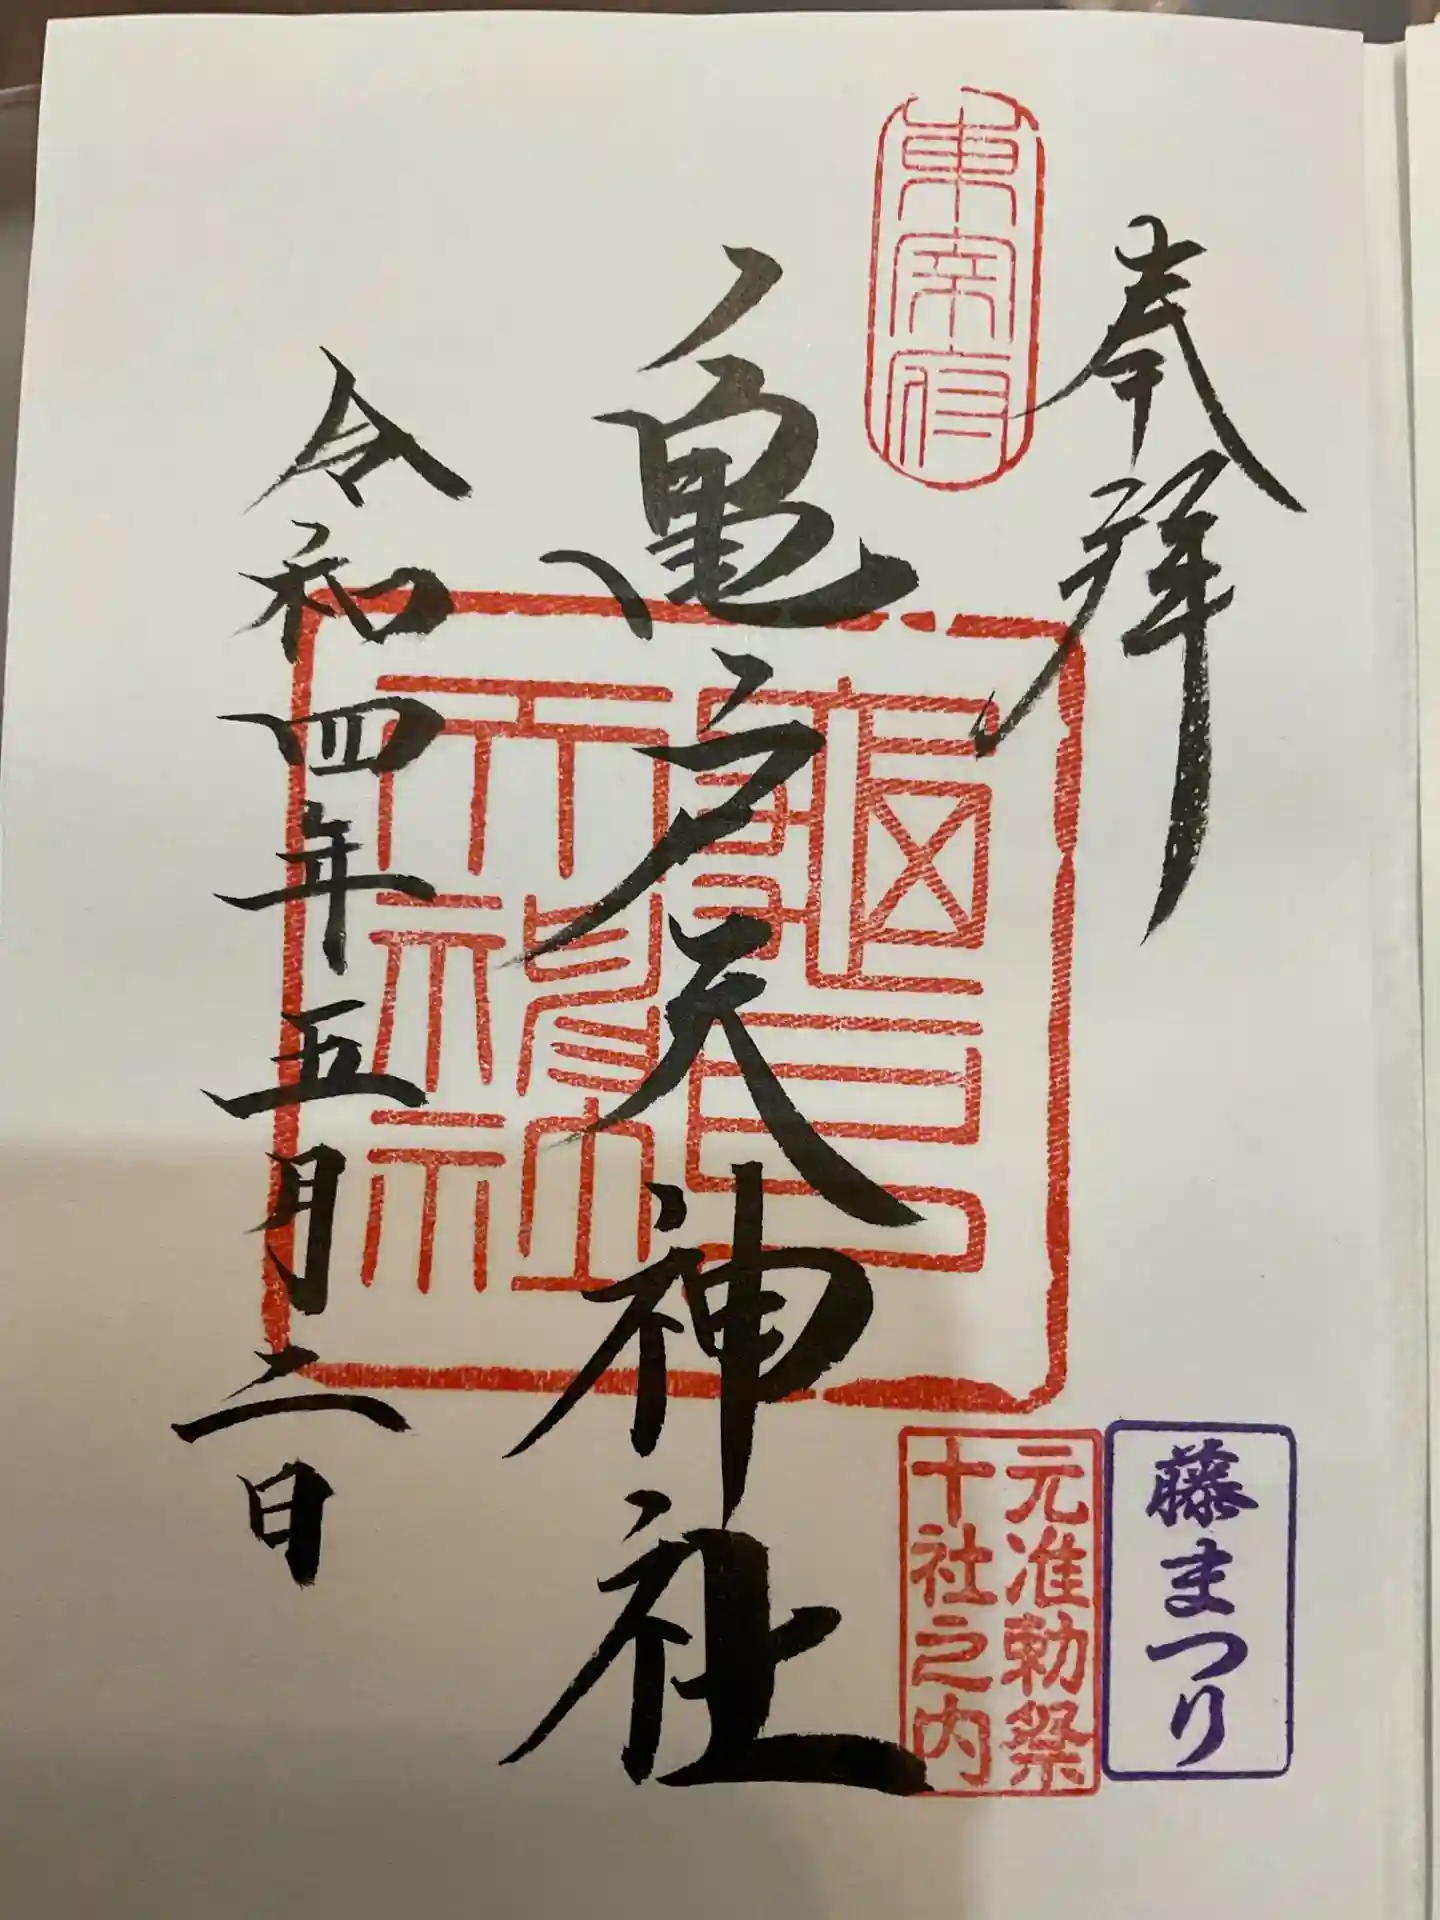 奉拝
東宰府
亀戸天神社
令和四年五月二日
藤まつり
元准勅祭
十社之内